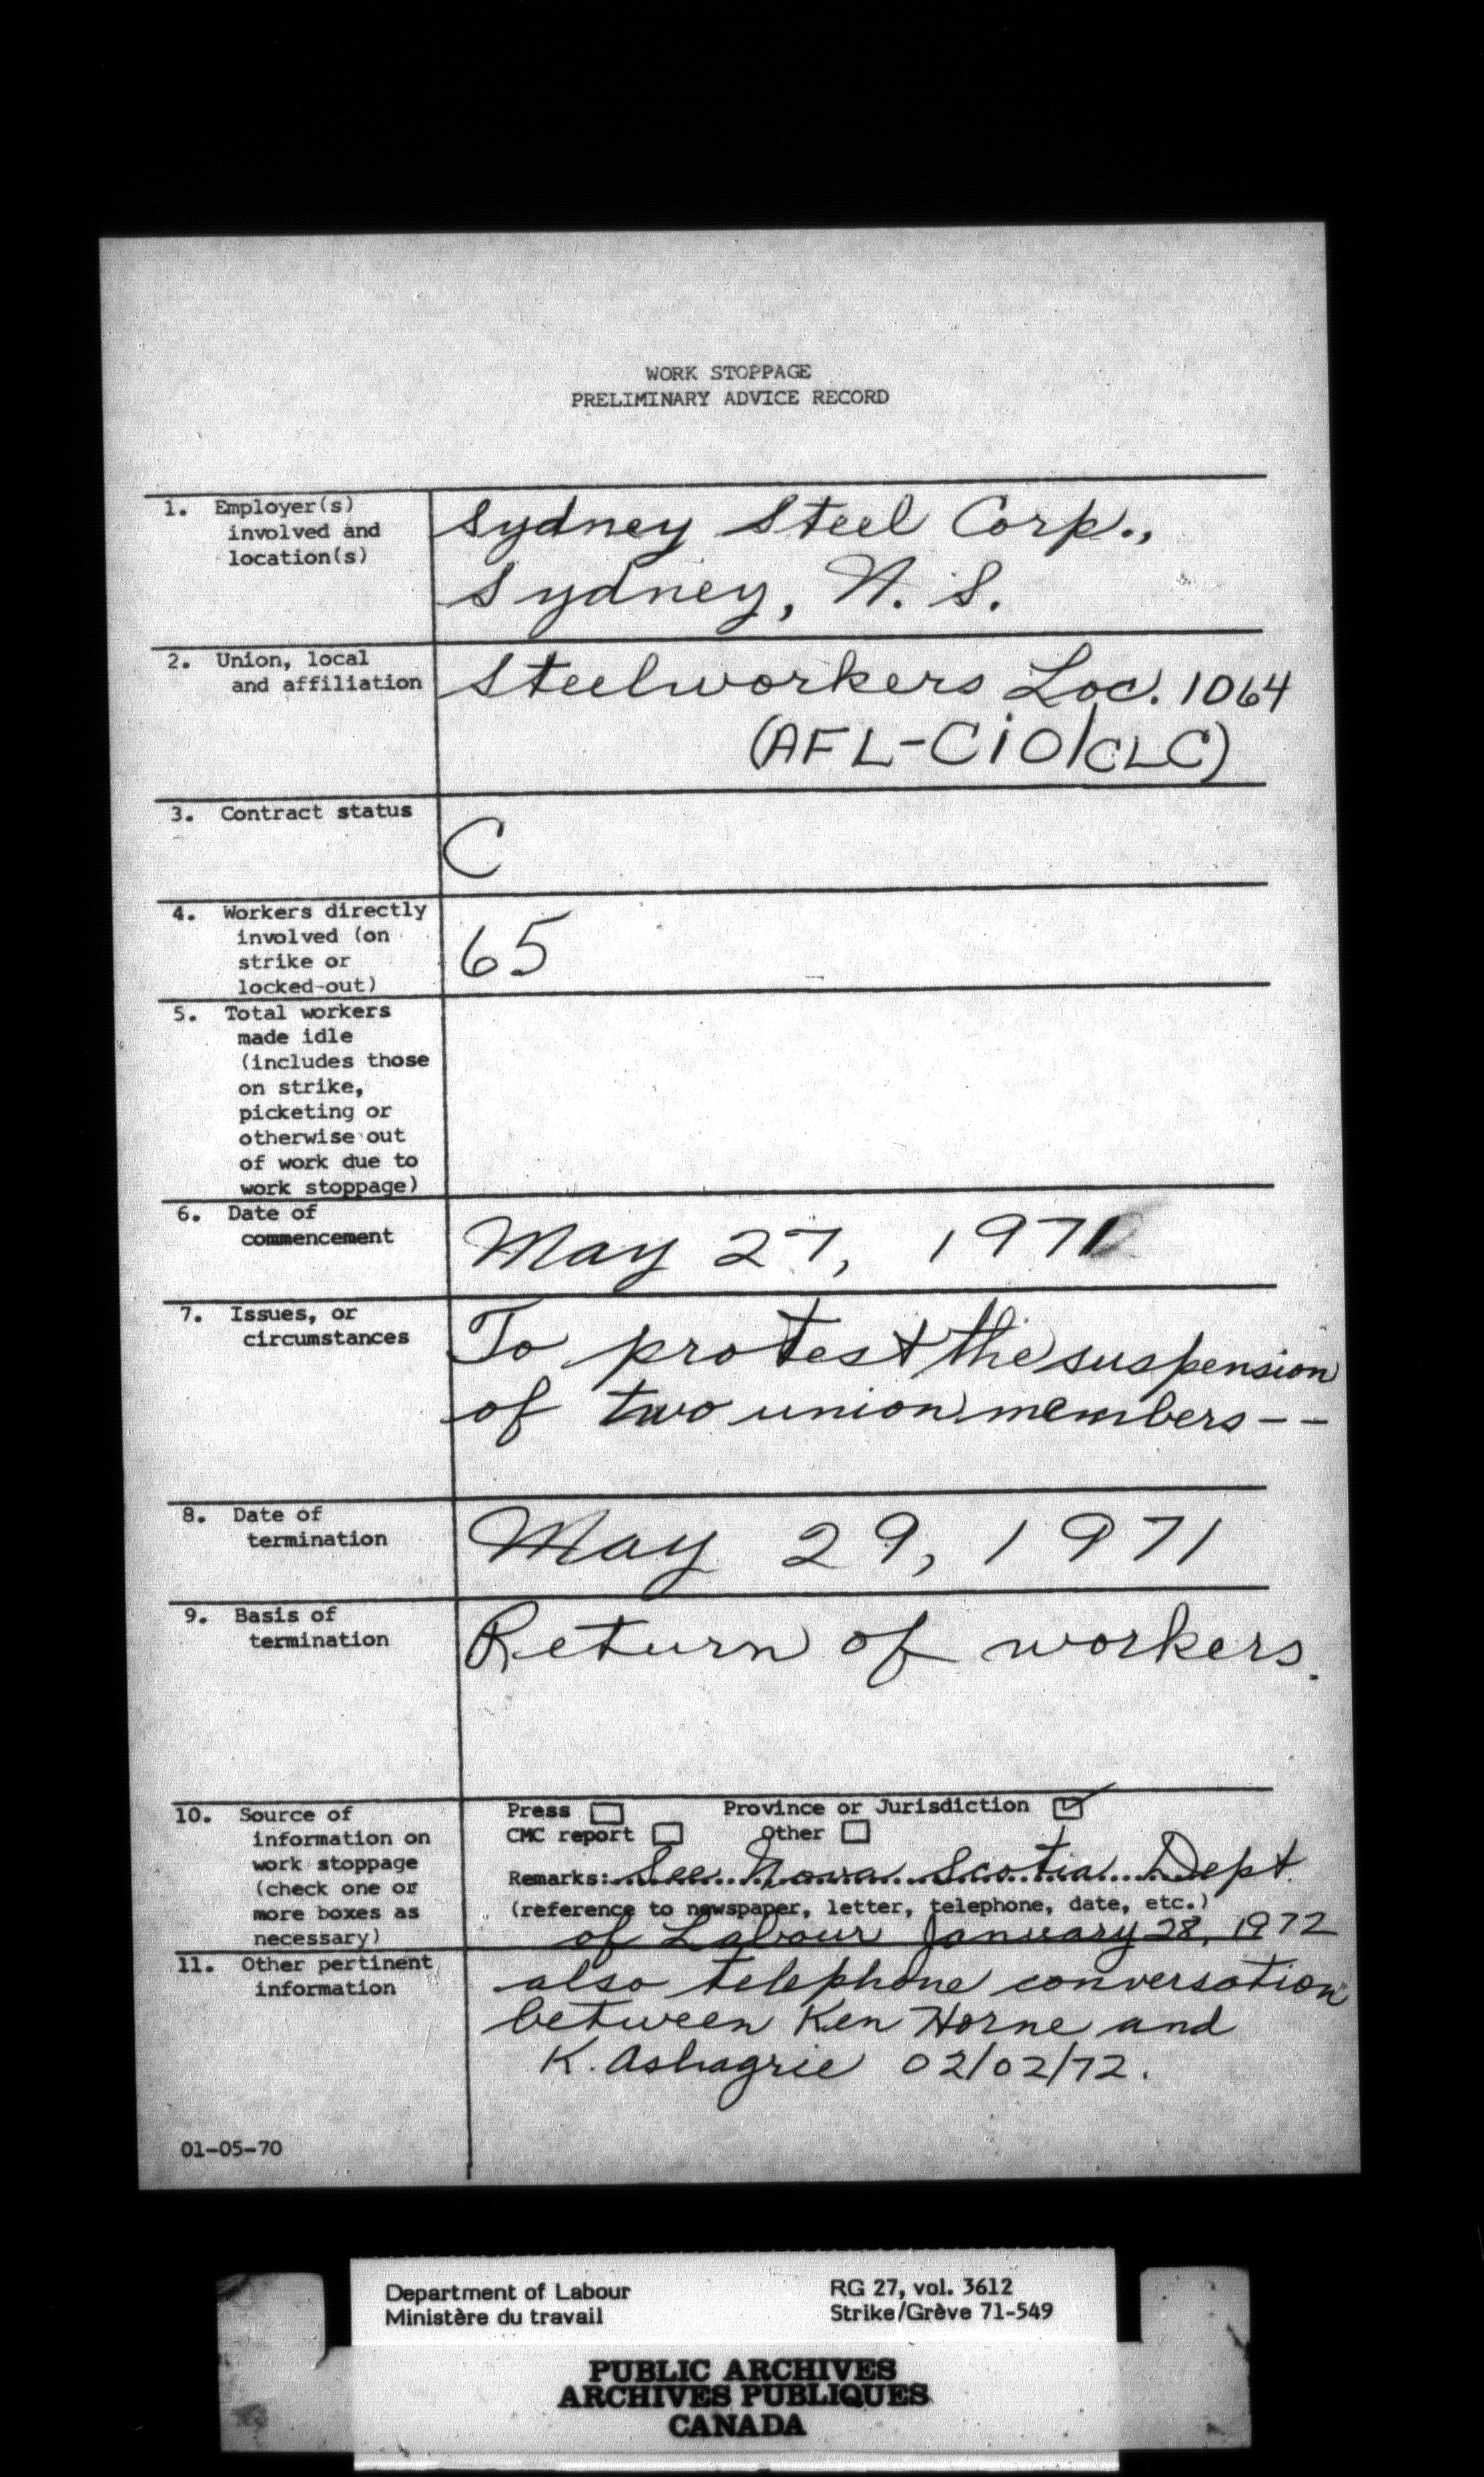 WORK STOPPAGE
PRELIMINARY ADVICE RECORD
1. Employer(s)
involved and
location(s)
Sydney Steel Corp.,
Sydney, N. S.
2. Union, local
and affiliation
Steelworkers Loc. 1064
(AFL-CiO/CLC)
3. Contract status
C
4. Workers directly
involved (on
strike or
locked-out)
65
5. Total workers
made idle
(includes those
on strike,
picketing or
otherwise out
of work due to
work stoppage)
6. Date of
commencement
May 27, 1971
7. Issues, or
circumstances
To protest the suspension
of two union members--
8. Date of
termination
May 29, 1971
9. Basis of
termination
Return of workers.
10. Source of
information on
work stoppage
(check one or
more boxes as
necessary)
Press Province or Jurisdiction
CMC report Other
Remarks: See Nova Scotia Dept.
(reference to newspaper, letter, telephone, date, etc.)
of Labour January 28, 1972
11. Other pertinent
information
also telephone conversation
between Ken Horne and
K. Ashagrie 02/02/72.
01-05-70
Department of Labour
Ministère du travail
RG 27, vol. 3612
Strike/Grève 71-549
PUBLIC ARCHIVES
ARCHIVES PUBLIQUES
CANADA